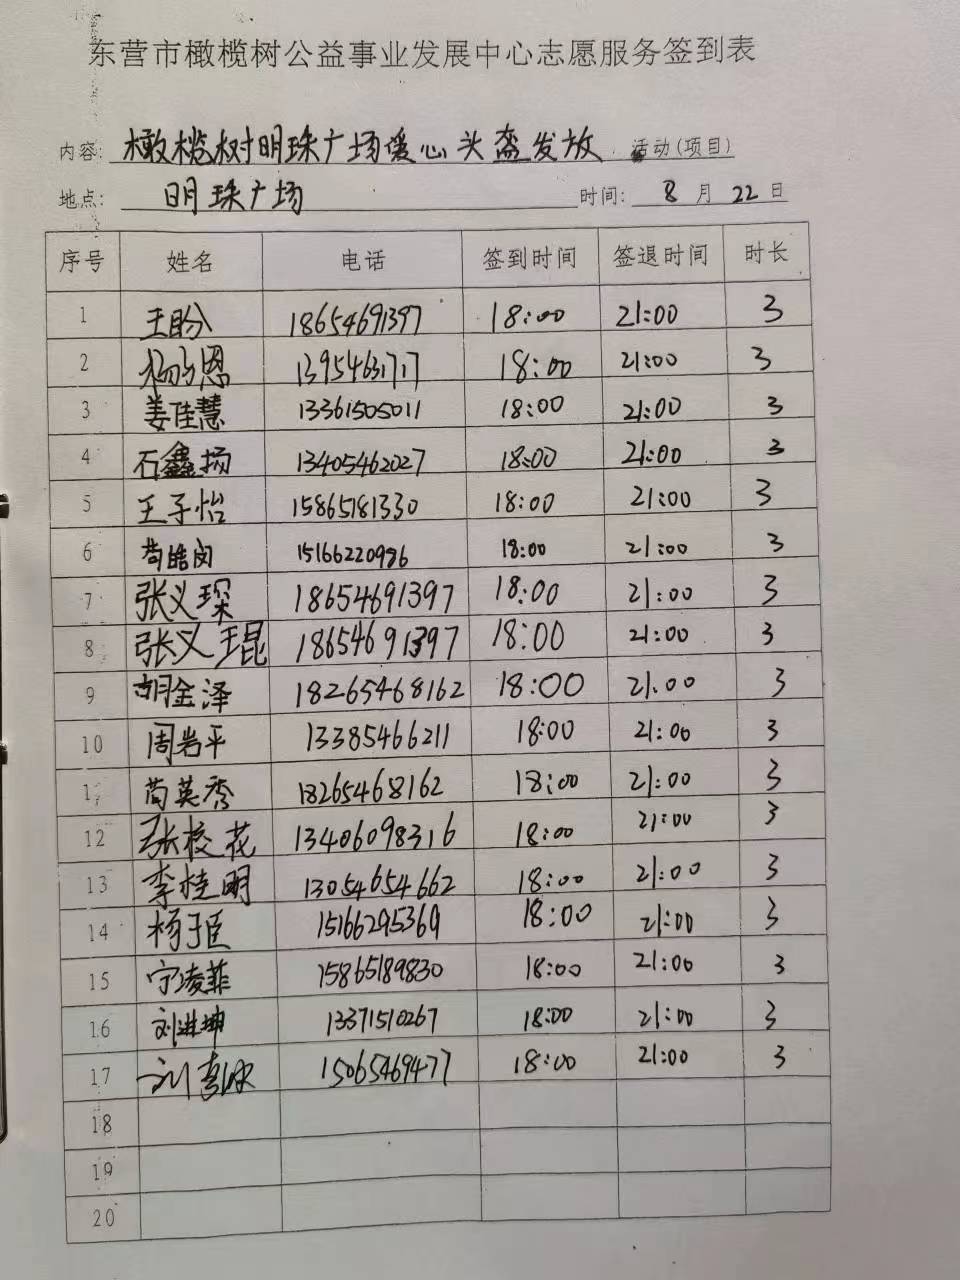 东营市橄榄树公益事业发展中心志愿服务签到表
内容: 橄榄树明珠广场爱心头盔发放 活动(项目)
地点: 明珠广场 时间: 8 月 22 日
序号 姓名 电话 签到时间 签退时间 时长
1 王盼 18654691397 18:00 21:00 3
2 13954631717 18:00 21:00 3
3 姜佳慧 13361505011 18:00 21:00 3
4 石鑫扬 13405462027 18:00 21:00 3
5 王子怡 15865181330 18:00 21:00 3
6 苟皓闵 15166220996 18:00 21:00 3
7 张义琛 18654691397 18:00 21:00 3
8 张义琨 18654691397 18:00 21:00 3
9 胡金泽 18265468162 18:00 21:00 3
10 周岩平 13385466211 18:00 21:00 3
11 苟英秀 18265468162 18:00 21:00 3
12 张校花 13406098316 18:00 21:00 3
13 李桂明 13054654662 18:00 21:00 3
14 杨于臣 15166295369 18:00 21:00 3
15 宁凌菲 15865189830 18:00 21:00 3
16 刘进坤 13371510267 18:00 21:00 3
17 15065469477 18:00 21:00 3
18
19
20